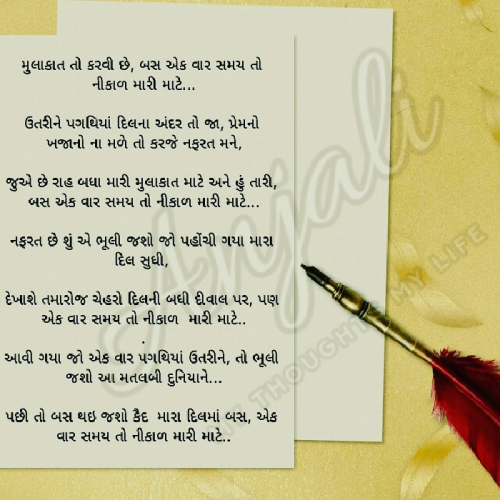 મુલાકાત તો કરવી છે, બસ એક વાર સમય તો
નીકાળ મારી માટે...
ઉતરીને પગથિયાં દિલના અંદર તો જા, પ્રેમનો
ખજાનો ના મળે તો કરજે નફરત મને,
જુએ છે રાહ બધા મારી મુલાકાત માટે અને હું તારી,
બસ એક વાર સમય તો નીકાળ મારી માટે...
નફરત છે શું એ ભૂલી જશો જો પહોંચી ગયા મારા
દિલ સુધી,
દેખાશે તમારોજ ચેહરો દિલની બધી દીવાલ પર, પણ
એક વાર સમય તો નીકાળ મારી માટે..
.
આવી ગયા જો એક વાર પગથિયાં ઉતરીને, તો ભૂલી
જશો આ મતલબી દુનિયાને...
પછી તો બસ થઇ જશો કૈદ મારા દિલમાં બસ, એક
વાર સમય તો નીકાળ મારી માટે..
Anjali
THOUGHT
MY LIFE